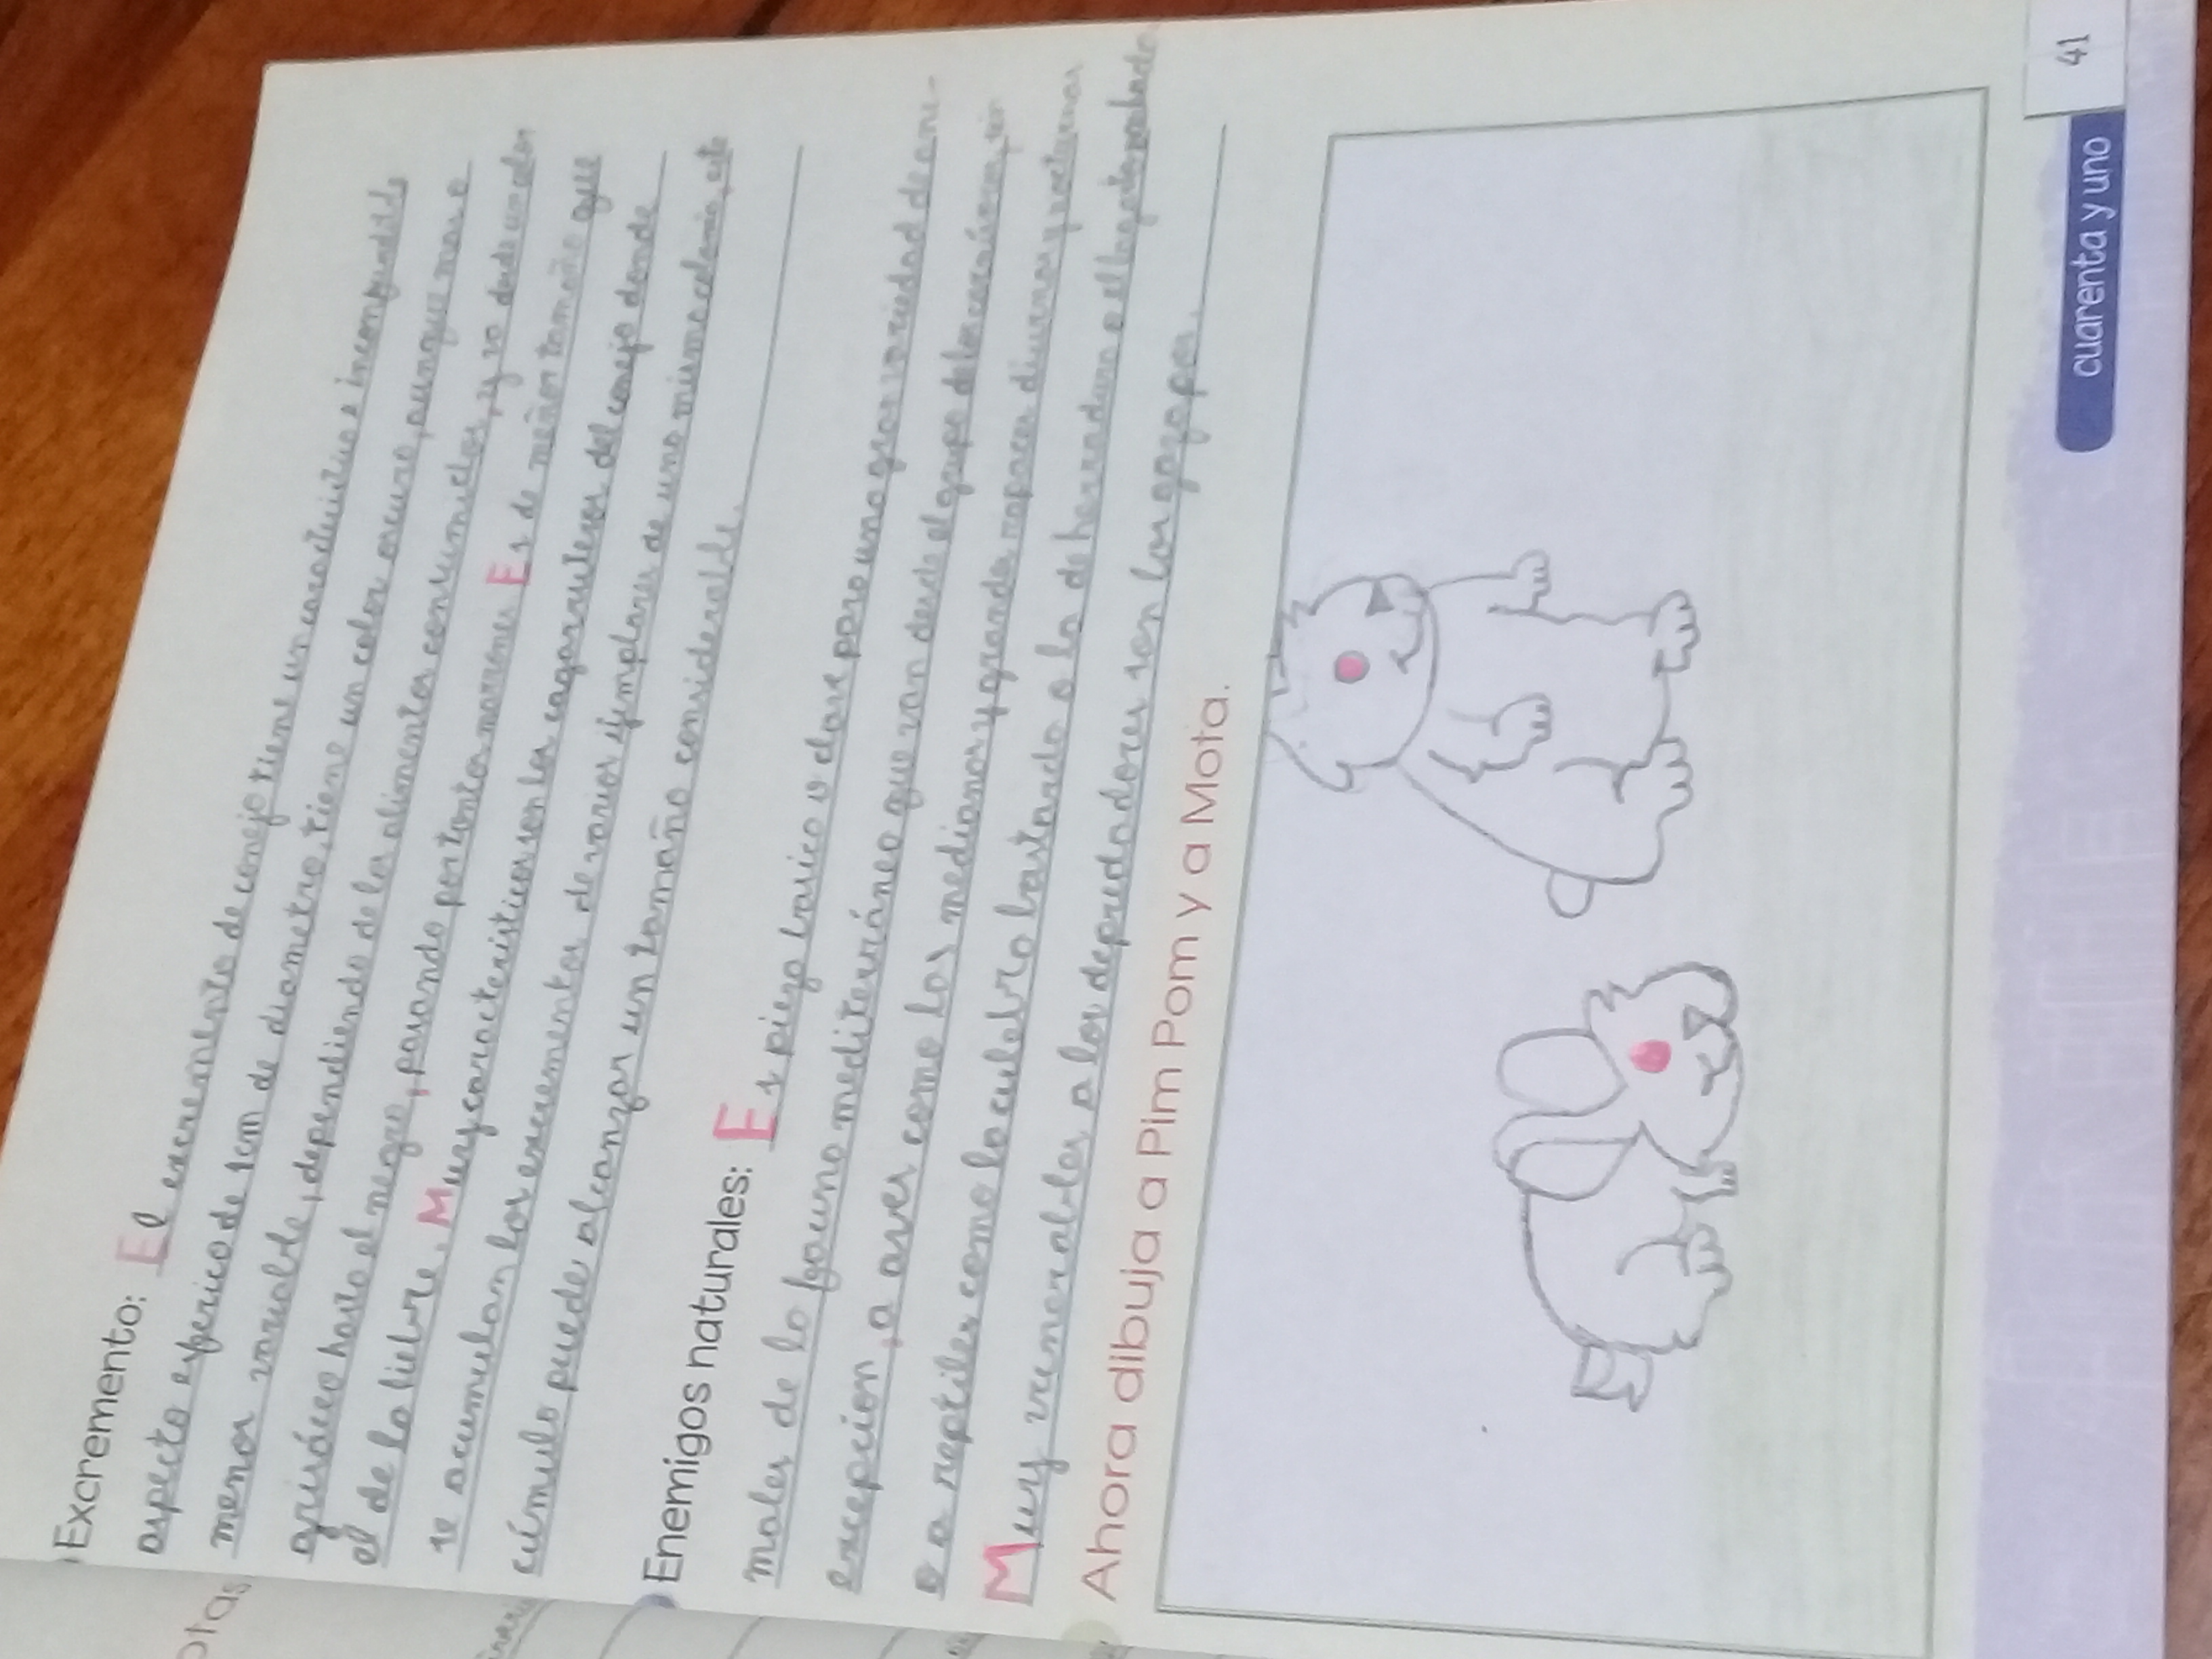 Excremento: El excremento de conejo tiene un caracteristico e inconfundible
aspecto esferico de 1cm de diametro, tiene un color oscuro, aunque mas o
menor variable, dependiendo de los alimentos consumidos, y va desde un color
grisáceo hasta el negro, pasando por tontos marrones Es de meñor tamaño que
el de la liebre. Muy caracteristicos son los cagarruteros del conejo donde
se acumulan los excrementos de varios ejemplares de una misma colonia, este
cúmulo puede alcanzar un tamaño considerable.
Enemigos naturales: Es pieza basica o clave para una gran variedad de ani-
males de la fauna mediterráneo que van desde el grupo de los carnívoros, sin
excepcion, a aves como los medianos y grandes rapaces diurnas y nocturnas
o a reptiles como la culebra bastarda o la de herradura o el lagarto ocelado.
Muy vunerables a los depredadores son los gazapos.
Ahora dibuja a Pim Pom y a Mota.
cuarenta y uno
41
otas